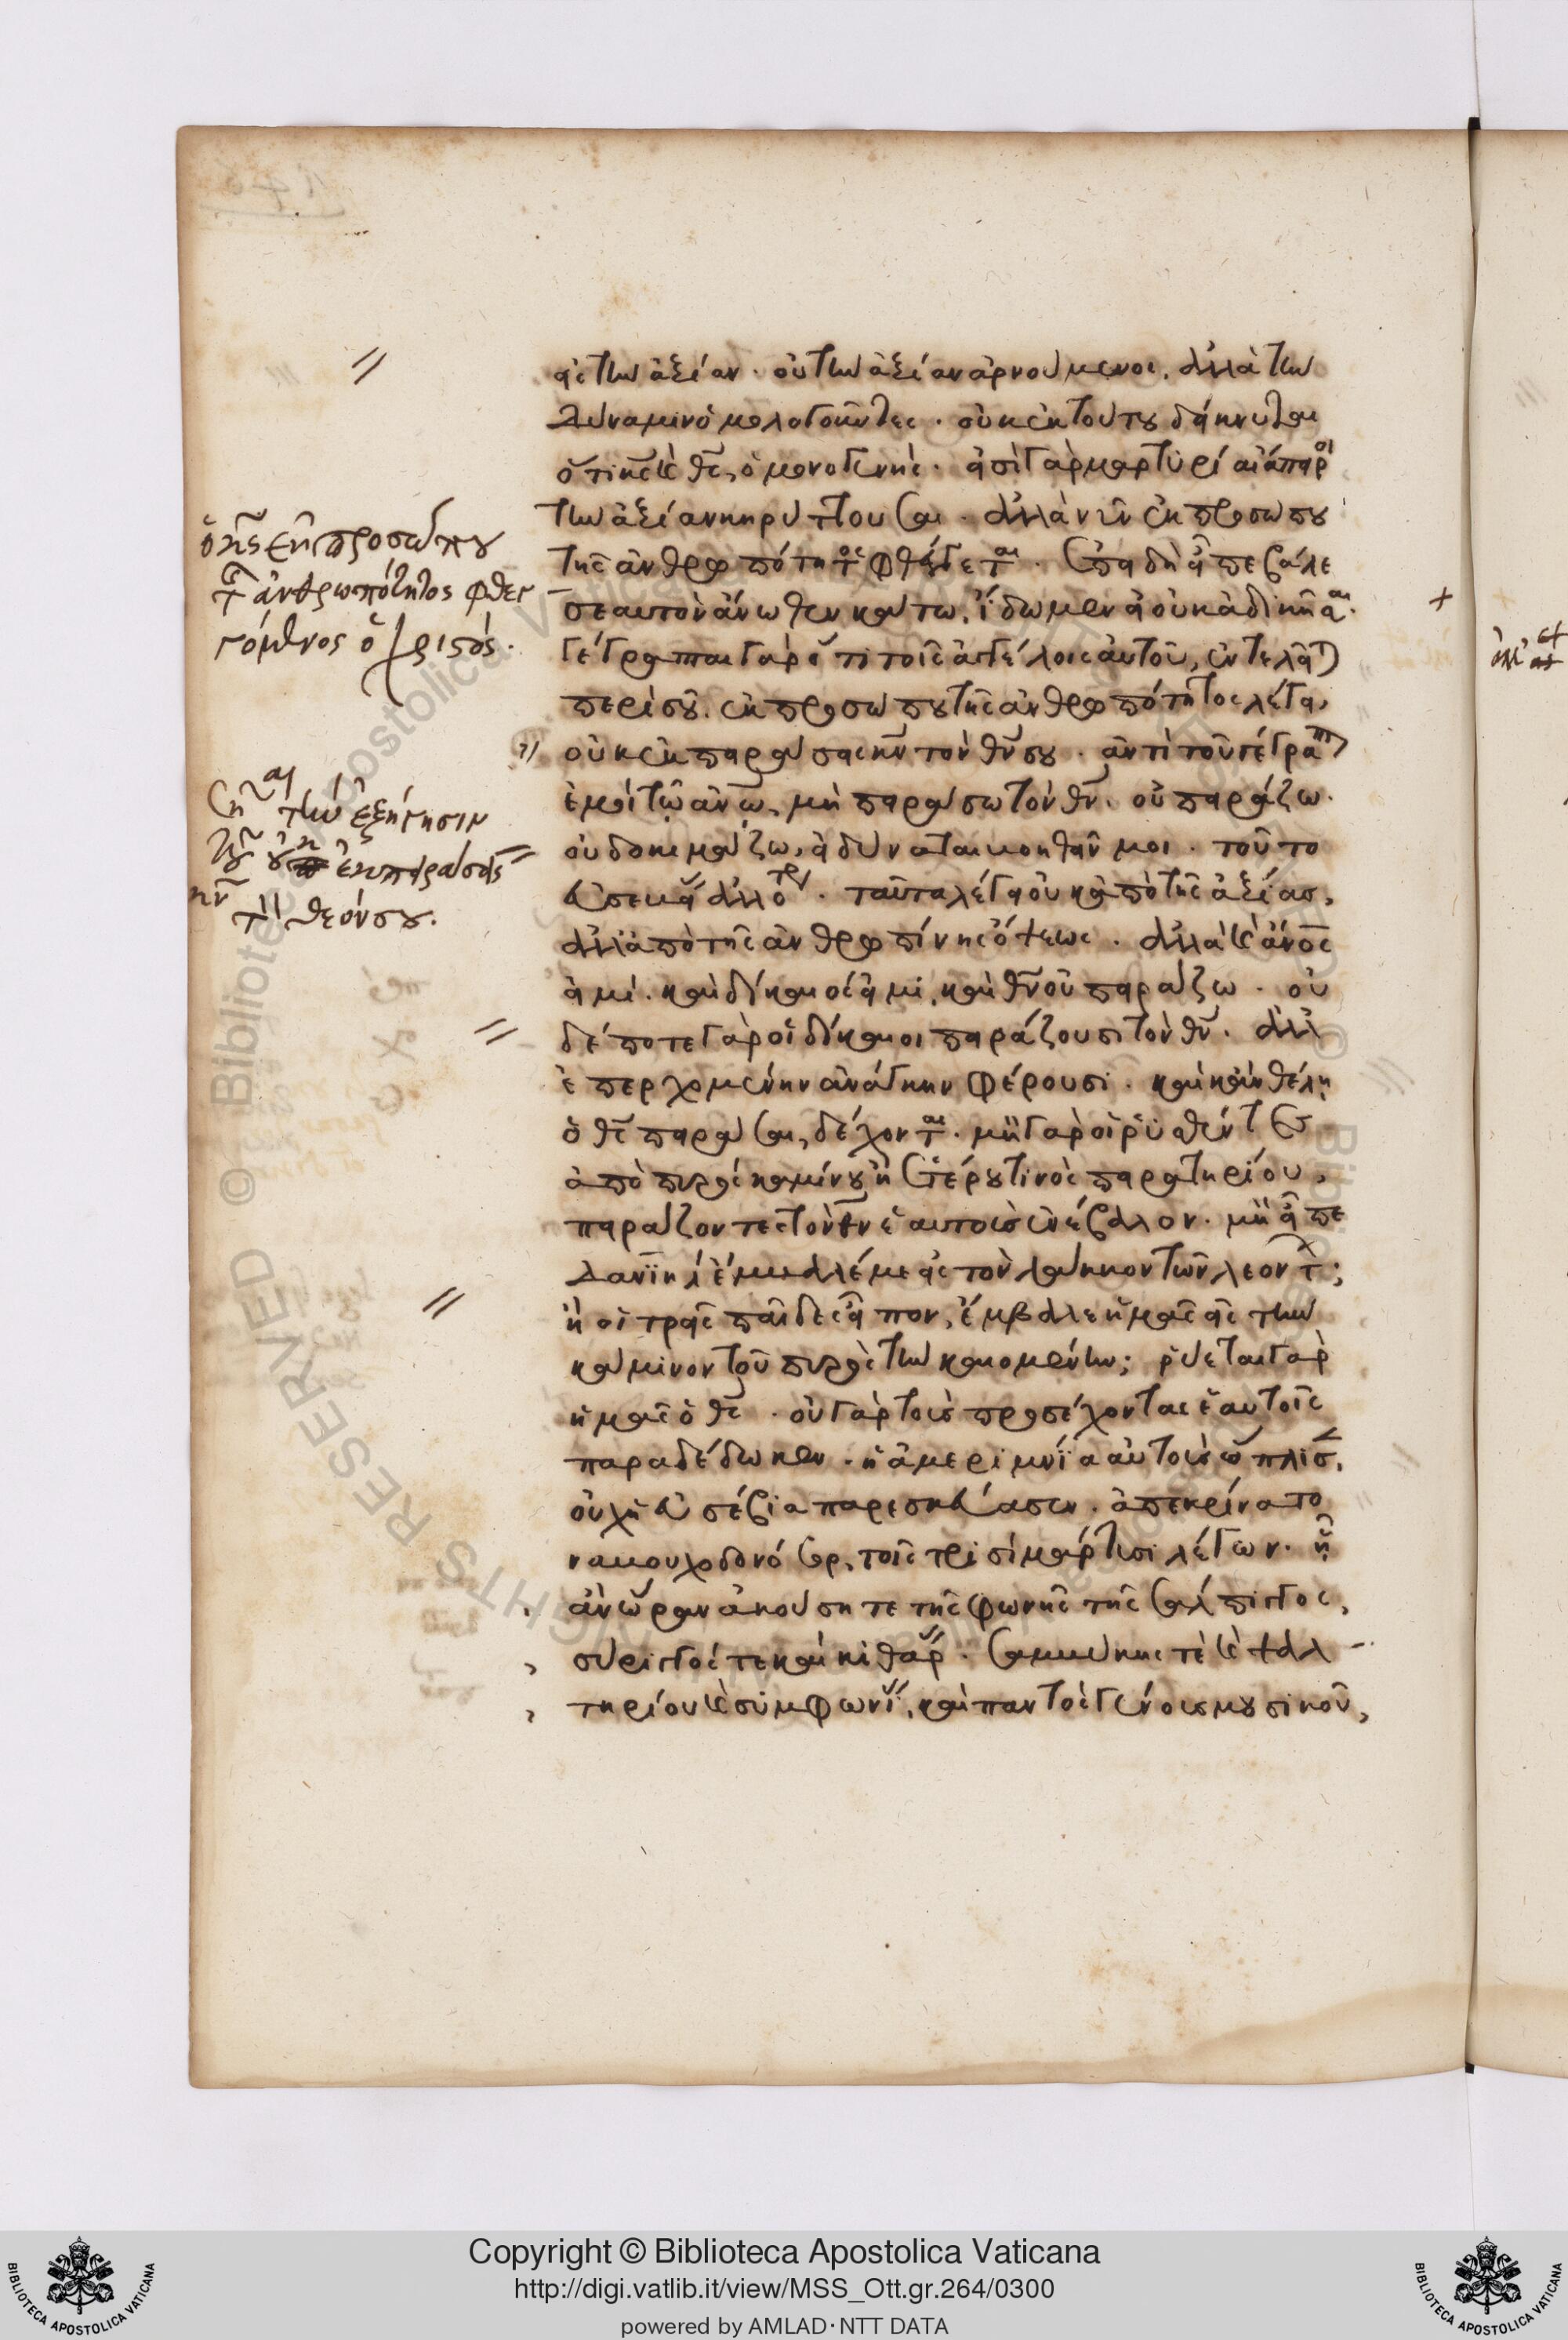 εἰς τὴν ἀξίαν. οὐ τὴν ἀξίαν ἀρνούμενοι, ἀλλὰ τὴν
δύναμιν ὁμολογοῦντες. οὐκ ἐκ τούτου δείκνυται
ὅτι κς καὶ θς ὁ μονογενής. εἰσὶ γὰρ μαρτυρίαι ἄπειροι
τὴν ἀξίαν κηρύττουσαι. ἀλλὰ νῦν ἐκ προσώπου
τῆς ἀνθρωπότητος φθέγγεται. ἐπειδὴ εἶπε βάλε
σεαυτὸν ἄνωθεν κάτω, ἴδωμεν εἰ οὐκ ἀδικῆσαι.
γέγραπται γὰρ ὅτι τοῖς ἀγγέλοις αὐτοῦ, ἐντελεῖται
περὶ σοῦ. ἐκ προσώπου τῆς ἀνθρωπότητος λέγει,
οὐκ ἐκπειράσεις κν τὸν θν σου. ἀντὶ τοῦ γέγραπται
ἐμοὶ τῷ ἀνω, μὴ πειράσω τὸν θν. οὐ πειράζω.
οὐ δοκιμάζω, εἰ δύναται βοηθεῖν μοι. τοῦτο
ταῦτα λέγει οὐκ ἀπὸ τῆς ἀξίας,
ἀλλ' ἀπὸ τῆς ἀνθρωπίνης ὄψεως. ἀλλὰ καὶ ἄνος
εἰμί. καὶ δίκαιός εἰμι, καὶ θν οὐ πειράζω. οὐ
δέποτε γὰρ οἱ δίκαιοι πειράζουσι τὸν θν. ἀλλ'
ἐπερχομένην ἀνάγκην φέρουσι. καὶ κἂν θέλῃ
ὁ θς πειρᾶσαι, δέχονται. μὴ γὰρ οἱ ῥυσθέντες
ἀπὸ πυρὸς καμίνου ἢ ἑτέρου τινὸς πειρατηρίου,
πειράζοντες τὸν θν ἑαυτοὺς ἐνέβαλον. μὴ εἶπε
Δανιὴλ ἐμβάλλέ με εἰς τὸν λάκκον τῶν λεόντων;
ἢ οἱ τρεῖς παῖδες εἶπον, ἔμβαλλε ἡμᾶς εἰς τὴν
κάμινον τοῦ πυρὸς τὴν καιομένην; ῥύεται γὰρ
ἡμᾶς ὁ θς. οὐ γὰρ τοῖς προσέχονται ἑαυτοῖς
παραδέδωκεν. ἡ ἀμεριμνία αὐτοὺς ὥπλισεν,
οὐχὶ εὐσέβεια παρεσκεύασεν. ἀπεκρίνατο
ναβουχοδονόσορ, τοῖς τρισὶ μάρτυσι λέγων. ᾗ
ἂν ὥραν ἀκούσητε τῆς φωνῆς τῆς σάλπιγγος,
σύριγγός τε καὶ κιθάρας. σαμβύκης τε καὶ ψαλ-
τηρίου καὶ συμφωνίας, καὶ παντὸς γένους μουσικοῦ,
ὁ κς ἐκ προσώπου
τῆς ἀνθρωπότητος φθεγ
γόμενος ὁ χριστός.
ση αι τὴν ἐξήγησιν
τοῦ οὐκ ἐκπειράσεις
κν τὸν θεόν σου.
Copyright © Biblioteca Apostolica Vaticana
http://digi.vatlib.it/view/MSS_Ott.gr.264/0300
powered by AMLAD·NTT DATA
BIBLIOTECA APOSTOLICA VATICANA
BIBLIOTECA APOSTOLICA VATICANA